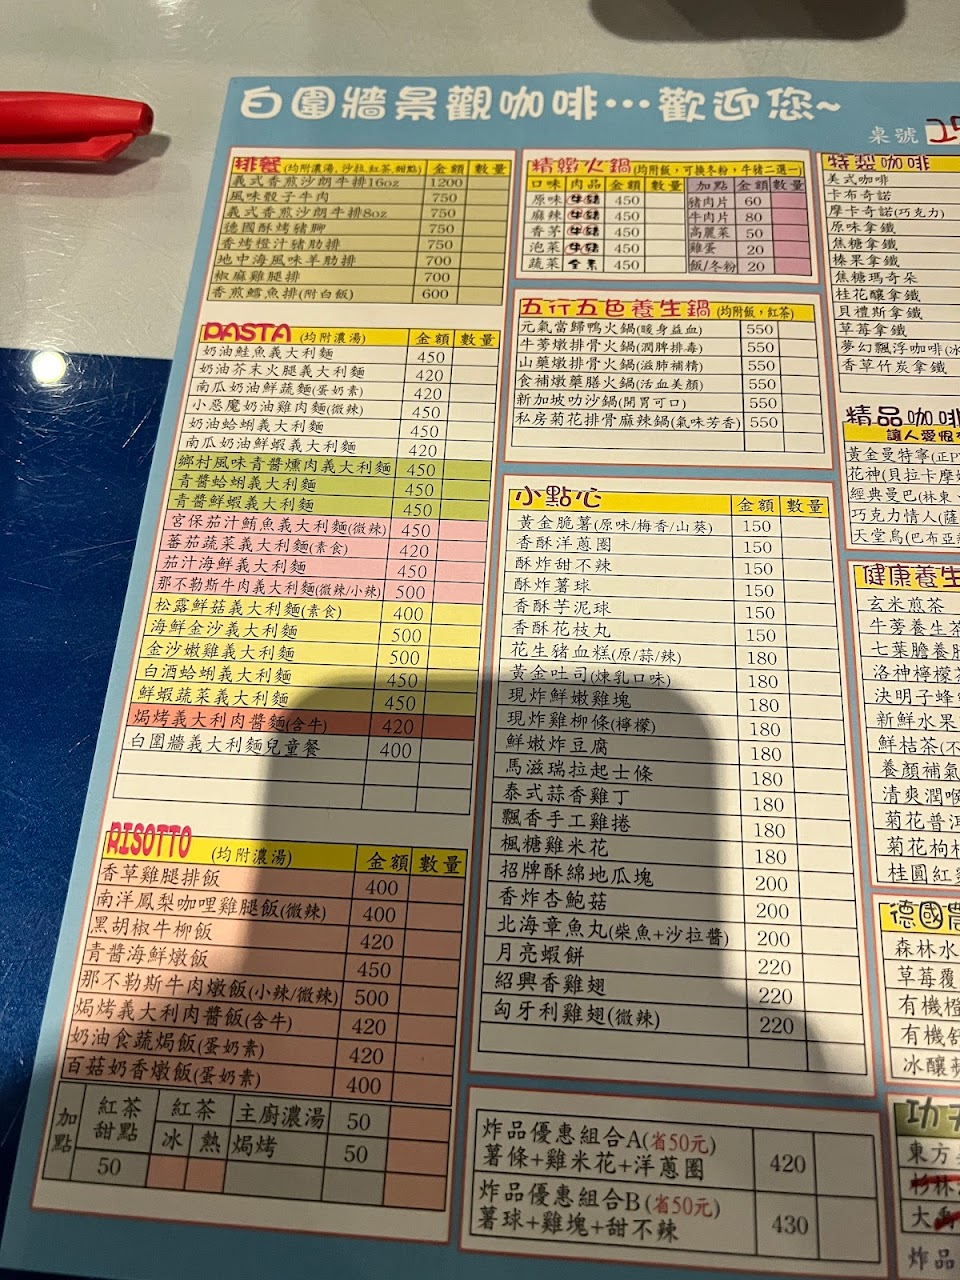 白圍牆景觀咖啡…歡迎您~
桌號
排餐(均附濃湯,沙拉,紅茶,甜點) 金額 數量
義式香煎沙朗牛排16oz 1200
風味骰子牛肉 750
義式香煎沙朗牛排8oz 750
德國酥烤豬腳 750
香烤橙汁豬肋排 750
地中海風味羊肋排 700
椒麻雞腿排 700
香煎鱈魚排(附白飯) 600
PASTA (均附濃湯) 金額 數量
奶油鮭魚義大利麵 450
奶油芥末火腿義大利麵 420
南瓜奶油鮮蔬麵(蛋奶素) 420
小惡魔奶油雞肉麵(微辣) 450
奶油蛤蜊義大利麵 450
南瓜奶油鮮蝦義大利麵 420
鄉村風味青醬燻肉義大利麵 450
青醬蛤蜊義大利麵 450
青醬鮮蝦義大利麵 450
宮保茄汁鮪魚義大利麵(微辣) 450
蕃茄蔬菜義大利麵(素食) 420
茄汁海鮮義大利麵 450
那不勒斯牛肉義大利麵(微辣/小辣) 500
松露鮮菇義大利麵(素食) 400
海鮮金沙義大利麵 500
金沙嫩雞義大利麵 500
白酒蛤蜊義大利麵 450
鮮蝦蔬菜義大利麵 450
焗烤義大利肉醬麵(含牛) 420
白圍牆義大利麵兒童餐 400
RISOTTO (均附濃湯) 金額 數量
香草雞腿排飯 400
南洋鳳梨咖哩雞腿飯(微辣) 400
黑胡椒牛柳飯 420
青醬海鮮燉飯 450
那不勒斯牛肉燉飯(小辣/微辣) 500
焗烤義大利肉醬飯(含牛) 420
奶油食蔬焗飯(蛋奶素) 420
百菇奶香燉飯(蛋奶素) 400
加點 紅茶甜點 50 紅茶 冰 熱 主廚濃湯 50
焗烤 50
精緻火鍋(均附飯,可換冬粉,牛豬二選一)
口味 肉品 金額 數量 加點 金額 數量
原味 牛豬 450 豬肉片 60
麻辣 牛豬 450 牛肉片 80
香茅 牛豬 450 高麗菜 50
泡菜 牛豬 450 雞蛋 20
蔬菜 全素 450 飯/冬粉 20
五行五色養生鍋(均附飯,紅茶)
元氣當歸鴨火鍋(暖身益血) 550
牛蒡燉排骨火鍋(潤脾排毒) 550
山藥燉排骨火鍋(滋肺補精) 550
食補燉藥膳火鍋(活血美顏) 550
新加坡叻沙鍋(開胃可口) 550
私房菊花排骨麻辣鍋(氣味芳香) 550
小點心 金額 數量
黃金脆薯(原味/梅香/山葵) 150
香酥洋蔥圈 150
酥炸甜不辣 150
酥炸薯球 150
香酥芋泥球 150
香酥花枝丸 150
花生豬血糕(原/蒜/辣) 180
黃金吐司(煉乳口味) 180
現炸鮮嫩雞塊 180
現炸雞柳條(檸檬) 180
鮮嫩炸豆腐 180
馬滋瑞拉起士條 180
泰式蒜香雞丁 180
飄香手工雞捲 180
楓糖雞米花 180
招牌酥綿地瓜塊 200
香炸杏鮑菇 200
北海章魚丸(柴魚+沙拉醬) 200
月亮蝦餅 220
紹興香雞翅 220
匈牙利雞翅(微辣) 220
炸品優惠組合A(省50元)
薯條+雞米花+洋蔥圈 420
炸品優惠組合B(省50元)
薯球+雞塊+甜不辣 430
特製咖啡
美式咖啡
卡布奇諾
摩卡奇諾(巧克力)
原味拿鐵
焦糖拿鐵
榛果拿鐵
焦糖瑪奇朵
桂花釀拿鐵
貝禮斯拿鐵
草莓拿鐵
夢幻飄浮咖啡(冰
香草竹炭拿鐵
精品咖啡
讓人愛恨
黃金曼特寧(正P
花神(貝拉卡摩
經典曼巴(林東、
巧克力情人(薩
天堂鳥(巴布亞
健康養生
玄米煎茶
牛蒡養生茶
七葉膽養
洛神檸檬茶
決明子蜂
新鮮水果
鮮桔茶(不
養顏補氣
清爽潤喉
菊花普洱
菊花枸杞
桂圓紅
德國
森林水
草莓覆
有機橙
有機舒
冰釀蘋
功夫
東方
杉林
大
炸品